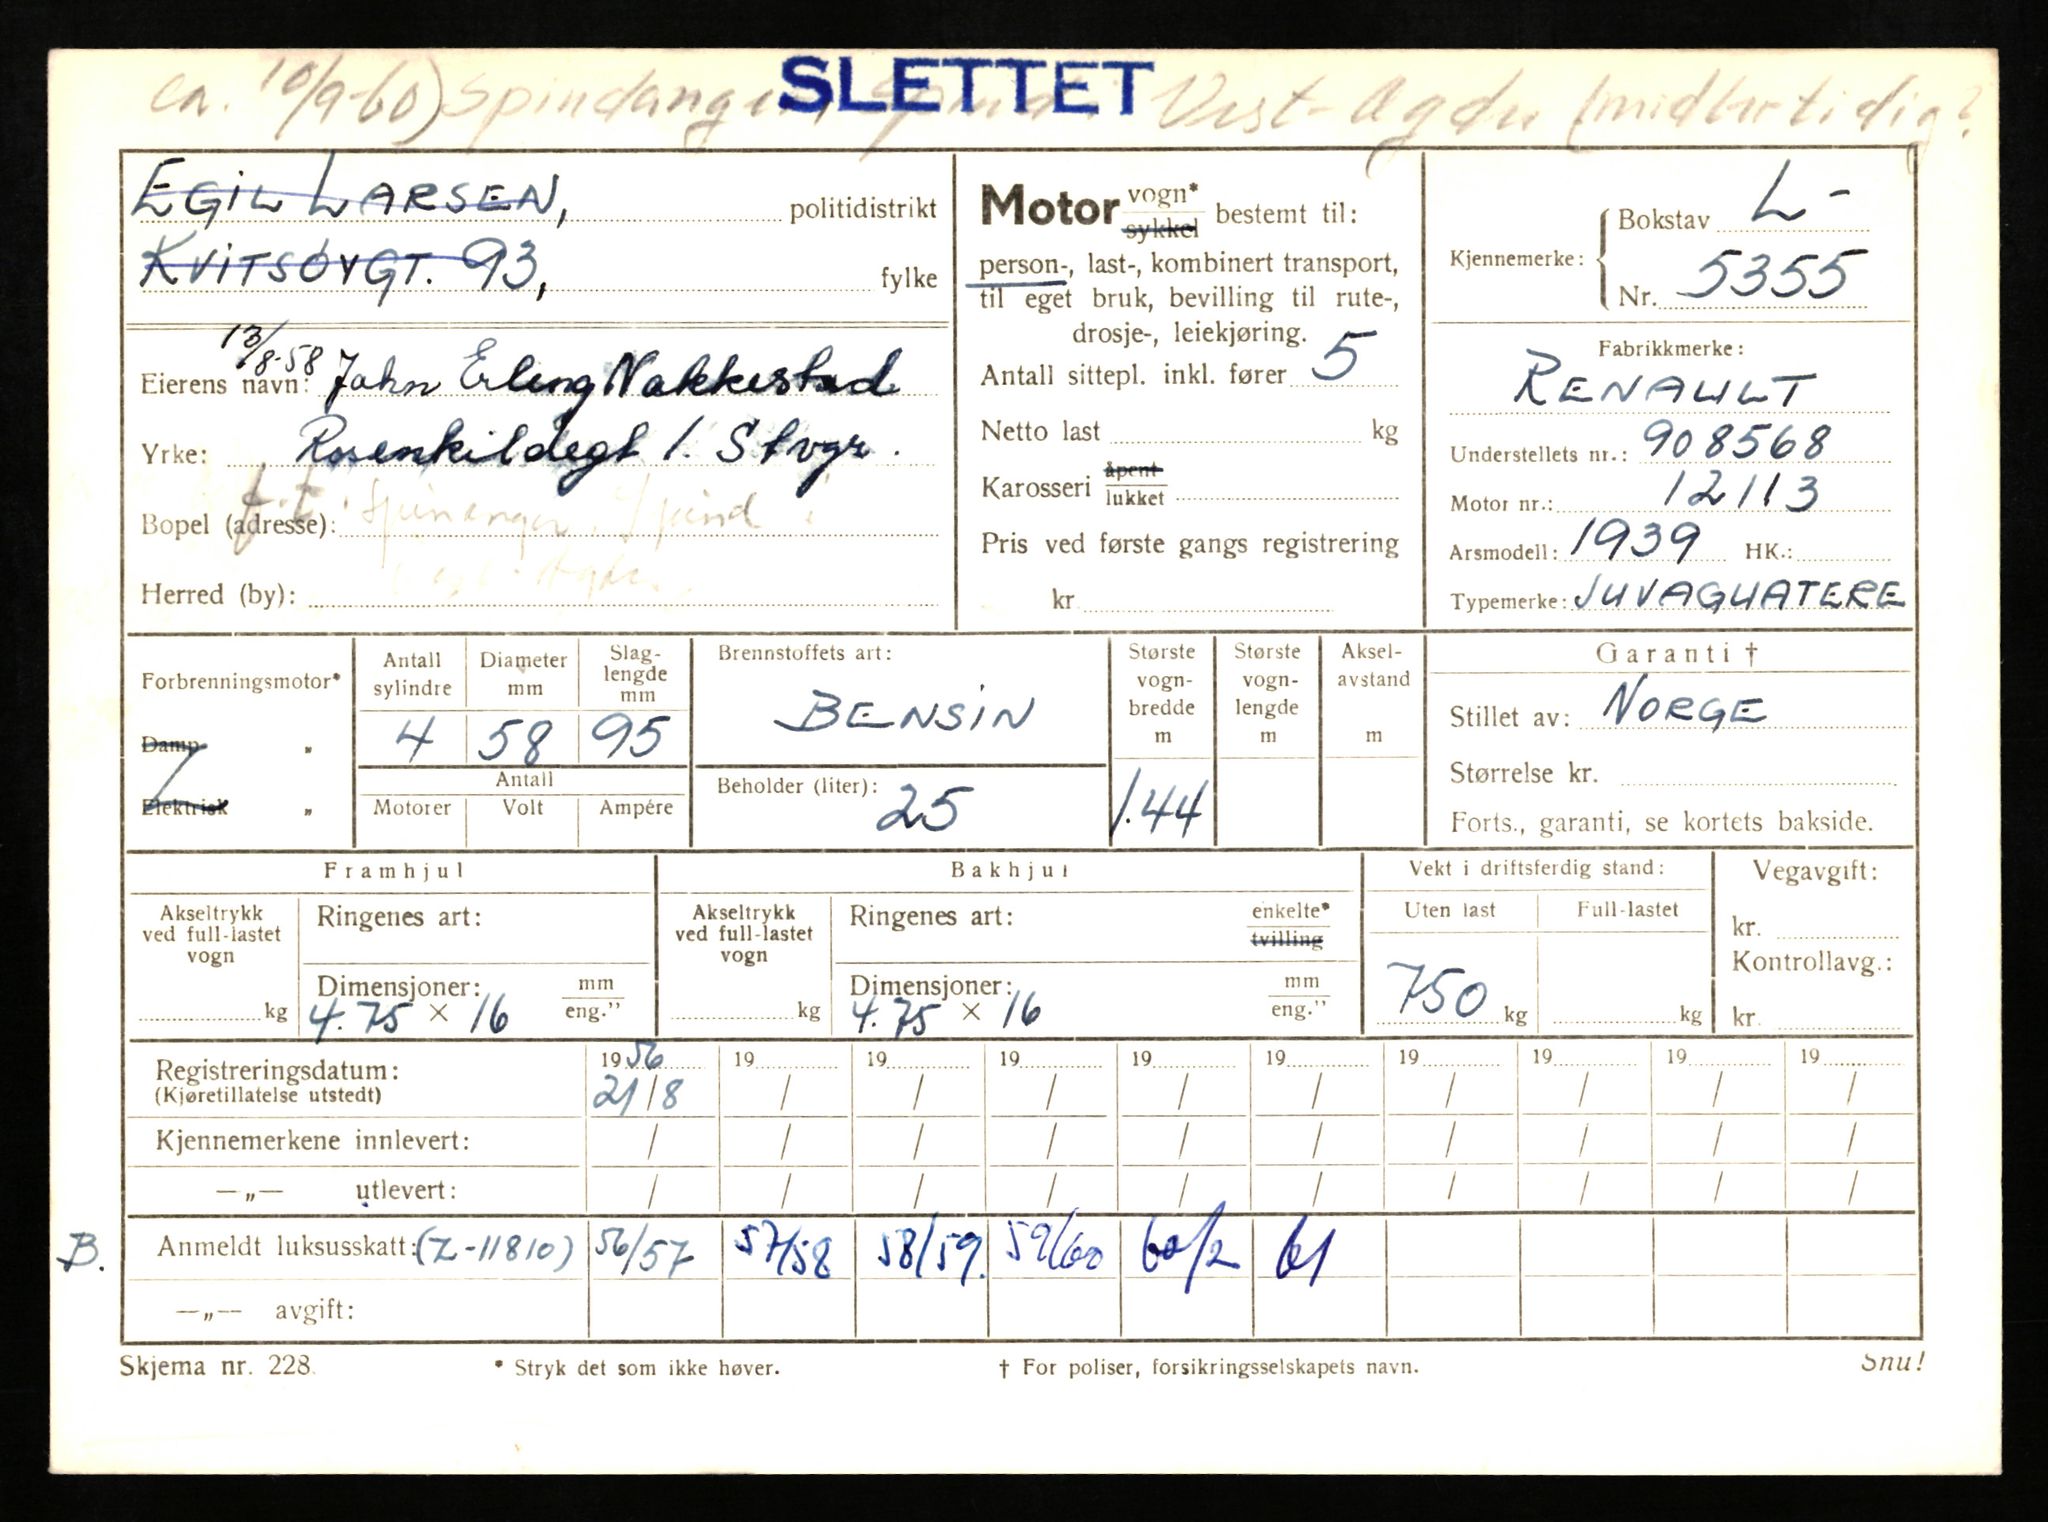 SLETTET
ca. 10/9-60) Vest-Agder (midlertidig?
EGIL LARSEN, politidistrikt
KVITSØYGT. 93, fylke
13/8-58
Eierens navn: John Erling Nakkestad
Yrke: Rosenkildegt 1. Stvgr.
Bopel (adresse):
Herred (by):
Motor vogn* sykkel bestemt til:
person-, last-, kombinert transport,
til eget bruk, bevilling til rute-,
drosje-, leiekjøring.
Antall sittepl. inkl. fører 5
Netto last kg
Karosseri åpent lukket
Pris ved første gangs registrering
kr
Kjennemerke: Bokstav L-
Nr. 5355
Fabrikkmerke:
RENAULT
Understellets nr.: 908568
Motor nr.: 12113
Arsmodell: 1939 HK.:
Typemerke: JUVAGUATERE
Forbrenningsmotor*
Damp "
Elektrisk "
Antall sylindre
4
Diameter mm
58
Slag-lengde mm
95
Antall
Motorer Volt Ampére
Brennstoffets art:
BENSIN
Beholder (liter):
25
Største vogn-bredde m
1.44
Største vogn-lengde m
Aksel-avstand m
Garanti †
Stillet av: NORGE
Størrelse kr.
Forts., garanti, se kortets bakside.
Framhjul
Akseltrykk ved full-lastet vogn
kg
Ringenes art:
Dimensjoner: mm eng."
4.75 × 16
Bakhjul
Akseltrykk ved full-lastet vogn
kg
Ringenes art: enkelte* tvilling
Dimensjoner: mm eng."
4.75 × 16
Vekt i driftsferdig stand:
Uten last Full-lastet
750 kg kg
Vegavgift:
kr.
Kontrollavg.:
kr.
Registreringsdatum: 1956 19 19 19 19 19 19 19 19 19
(Kjøretillatelse utstedt) 21/8 / / / / / / / / /
Kjennemerkene innlevert: / / / / / / / / / /
—„— utlevert: / / / / / / / / / /
B. Anmeldt luksusskatt: (Z-11810) 56/57 57/58 58/59. 59/60 60/2 61
—„— avgift:
Skjema nr. 228. * Stryk det som ikke høver. † For poliser, forsikringsselskapets navn. Snu!